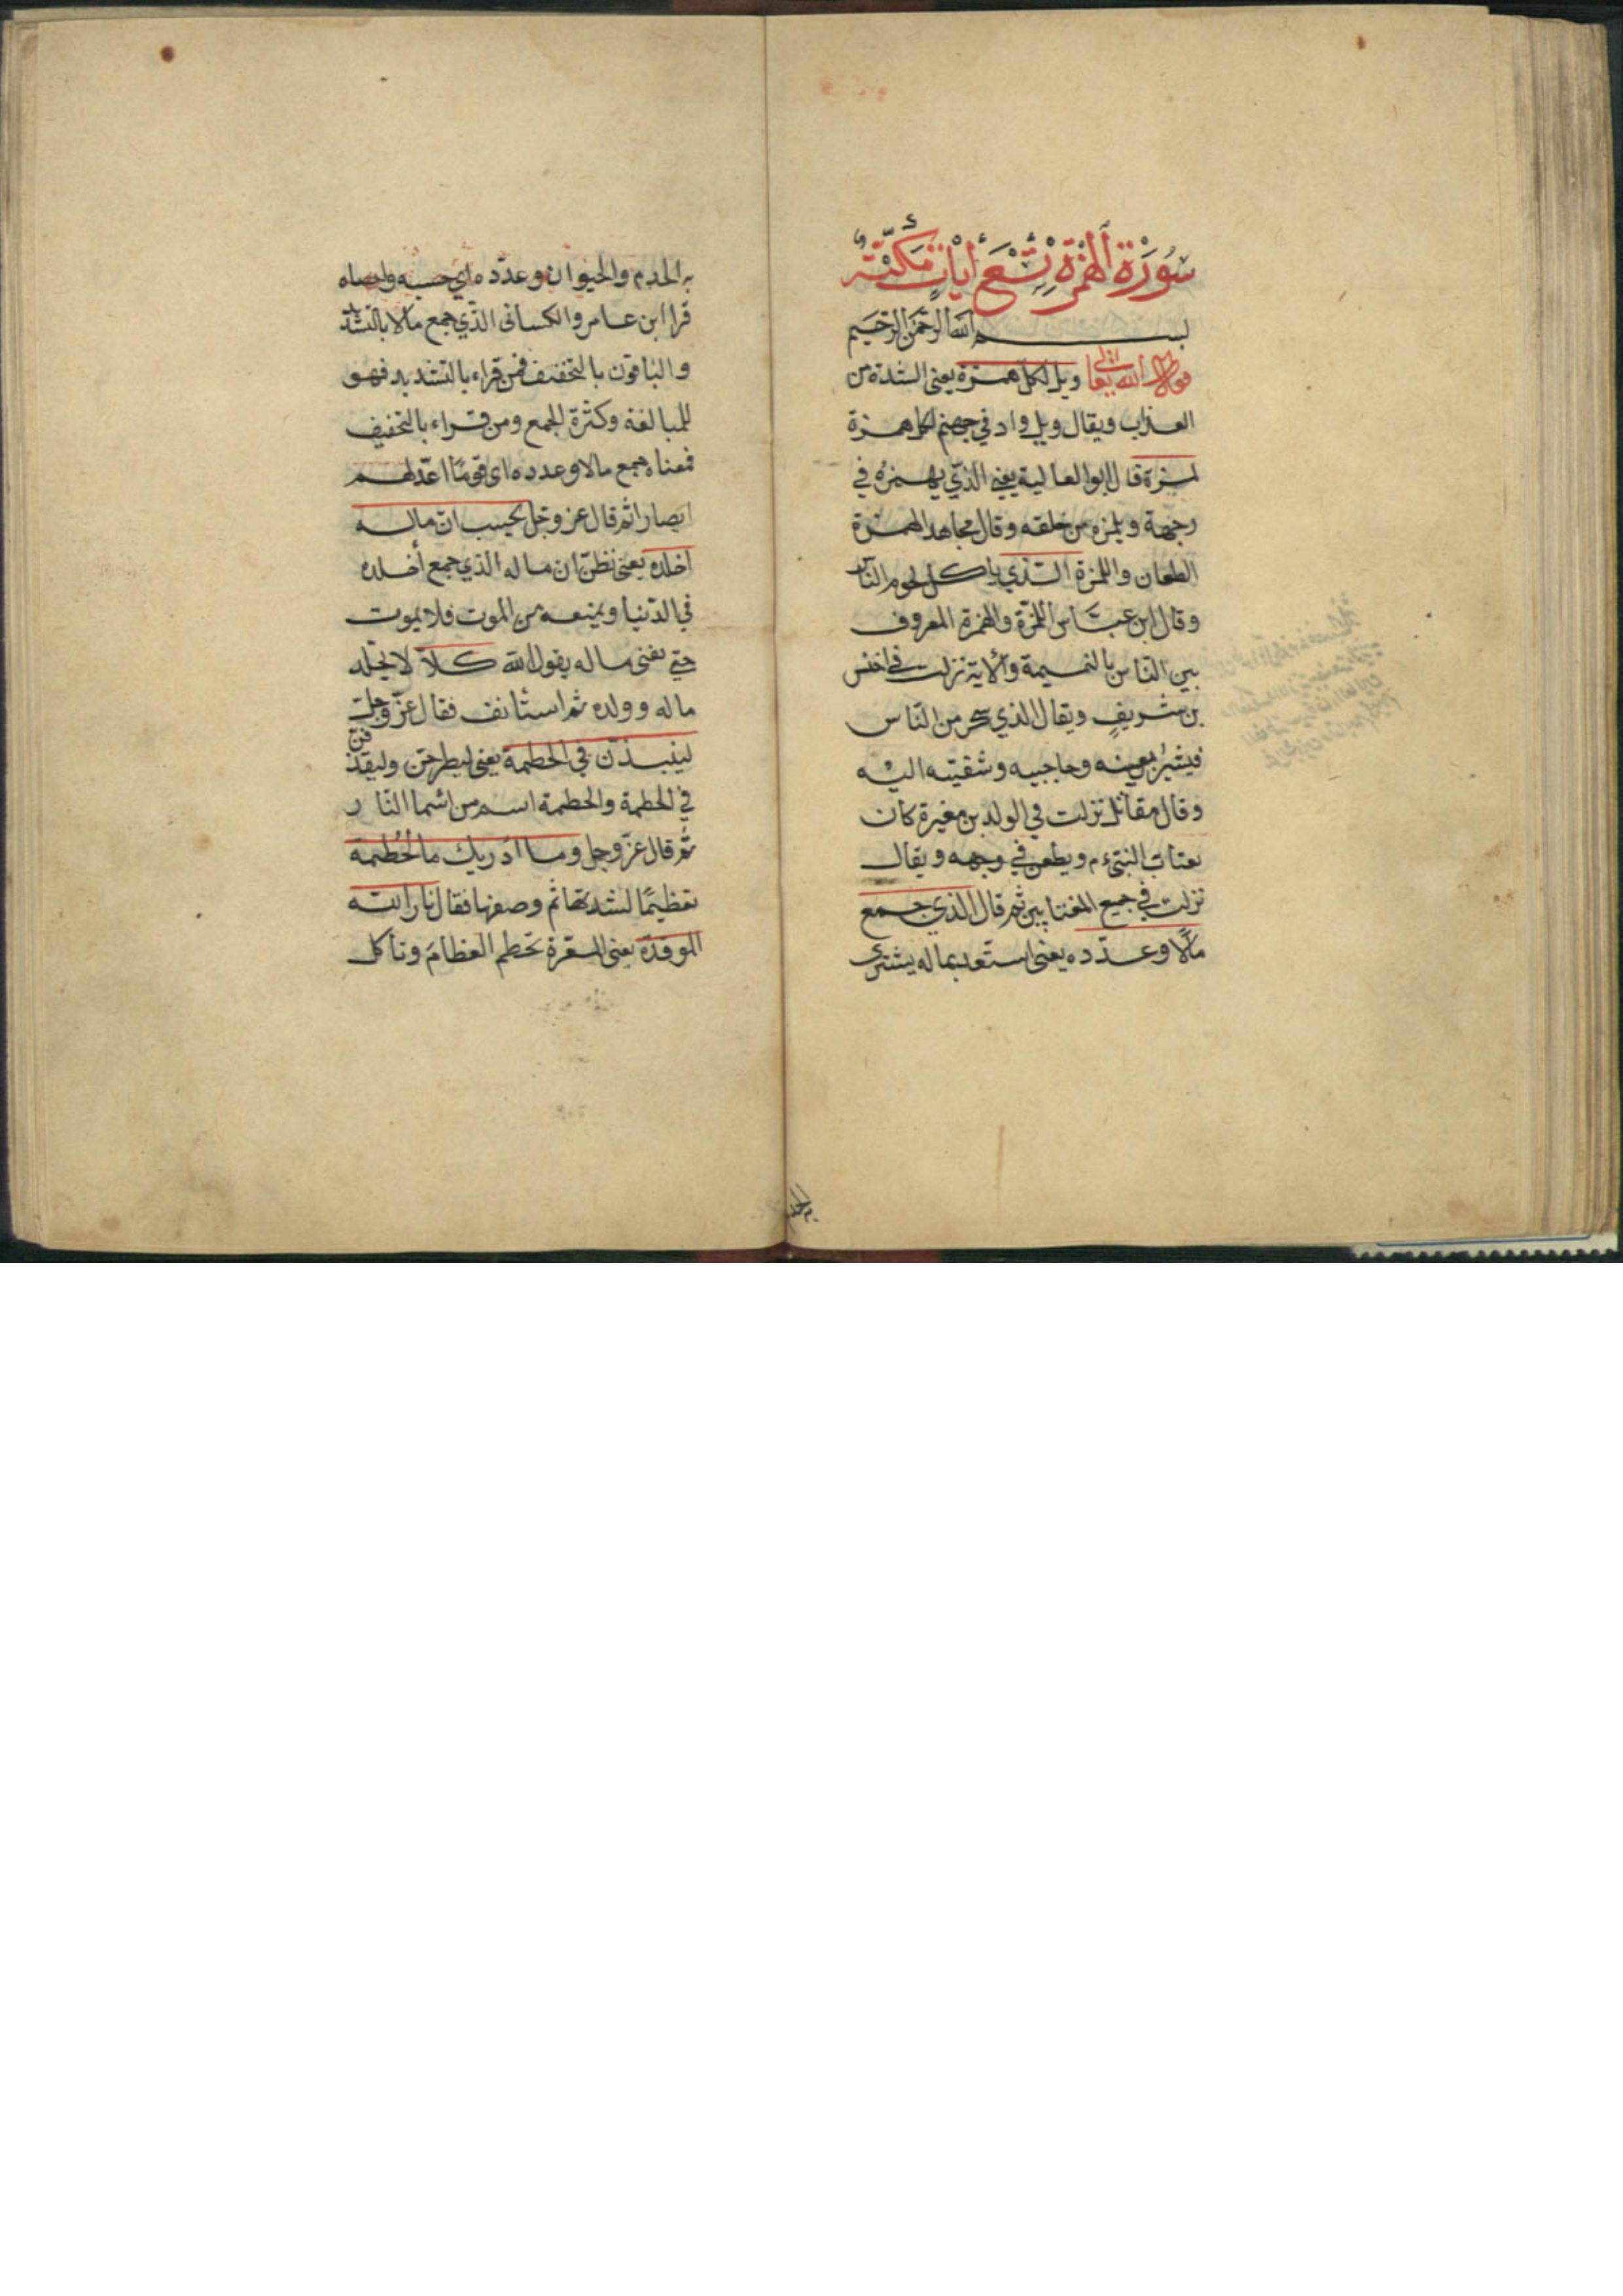 سُوْرَةُ الْهُمَزَةِ تِسْعُ أٰيَاتٍ مَكِّيَّةٌ
بسم الله الرحمن الرحيم
قوله الله تعالى ويل لكل همزة يعنى الشدة من
العذاب ويقال ويل واد في جهنم لكل همزة
لمزة قال ابو العالية يعني الذي يهمزه في
وجهه ويلمزه من خلقه وقال مجاهد الهمزة
الطعان واللمزة الذي ياكل لحوم الناس
وقال ابن عباس اللمزة والهمزة المعروف
بين الناس بالنميمة والاية نزلت في اخنس
بن شريف ويقال الذي من الناس
فيشير بعينه وحاجبيه وشفتيه اليه
وقال مقاتل نزلت في الولد بن مغيرة كان
يغتاب النبي ء م ويطعن في وجهه ويقال
نزلت في جميع المغتابين ثم قال الذي جمع
مالا وعدده يعنى استعد بماله يشترى
به الخدم والحيوان وعدده اي حسبه واحصاه
قرا ابن عامر والكسائى الذي جمع مالا بالتشد
والباقون بالتخفيف فمن قراء بالتشديد فهو
للمبالغة وكثرة الجمع ومن قراء بالتخفيف
فمعناه جمع مالا وعدده اى قوما اعدلهم
ايصارا ثم قال عز وجل يحسب ان ماله
اخلده يعنى نظن ان ماله الذي جمع أخلده
في الدنيا ويمنعه من الموت فلا يموت
حتي يفنى ماله يقول الله كلا لا يخلد
ماله وولده ثم استئانف فقال عز وجل
لينبذن في الحطمة يعنى ليطرحن وليقذ
فن
في الحطمة والحطمة اسم من اسما النار
ثم قال عز وجل وما ادريك ما الحطمة
تعظيما لشدتها ثم وصفها فقال نار الله
الموقدة يعنى المسعرة تحطم العظام وتأكل
به الخدم